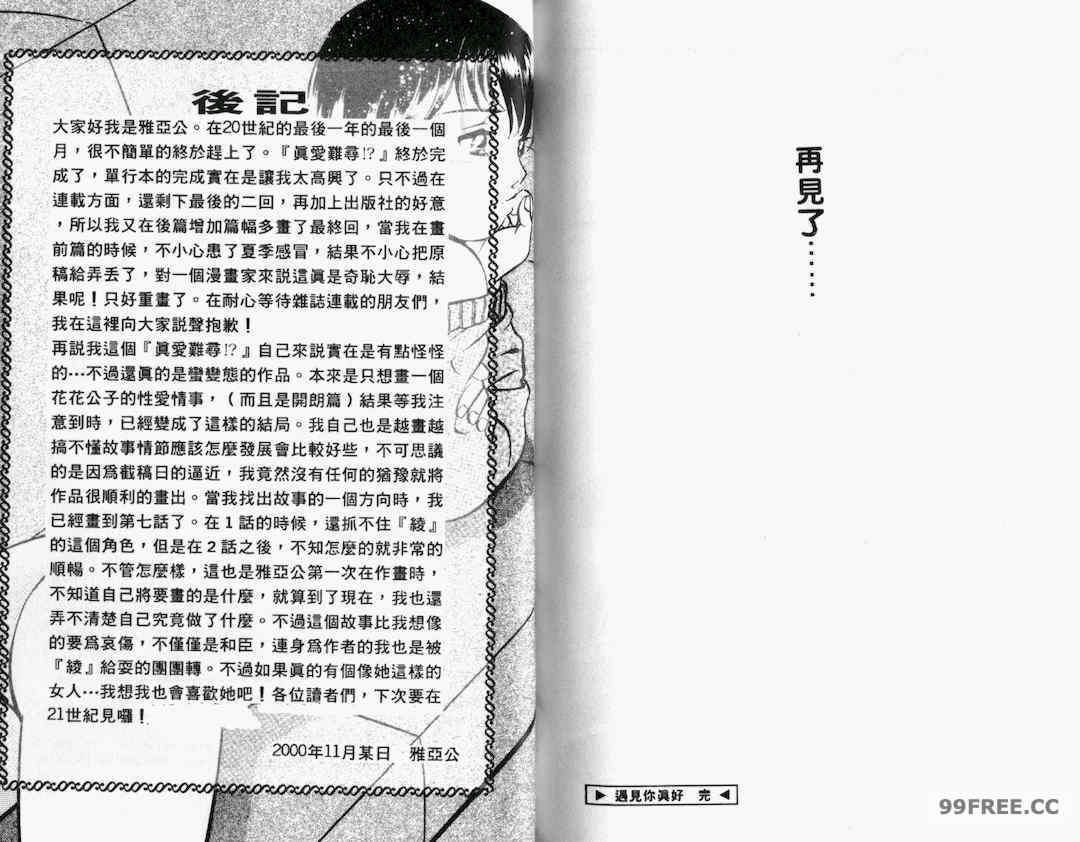 後記
大家好我是雅亞公。在20世紀的最後一年的最後一個
月，很不簡單的終於趕上了。『眞愛難尋!?』終於完
成了，單行本的完成實在是讓我太高興了。只不過在
連載方面，還剩下最後的二回，再加上出版社的好意
，所以我又在後篇增加篇幅多畫了最終回，當我在畫
前篇的時候，不小心患了夏季感冒，結果不小心把原
稿給弄丟了，對一個漫畫家來說這眞是奇恥大辱，結
果呢！只好重畫了。在耐心等待雜誌連載的朋友們，
我在這裡向大家說聲抱歉！
再説我這個『眞愛難尋!?』自己來説實在是有點怪怪
的…不過還眞的是蠻變態的作品。本來是只想畫一個
花花公子的性愛情事，（而且是開朗篇）結果等我注
意到時，已經變成了這樣的結局。我自己也是越畫越
搞不懂故事情節應該怎麼發展會比較好些，不可思議
的是因爲截稿日的逼近，我竟然沒有任何的猶豫就將
作品很順利的畫出。當我找出故事的一個方向時，我
已經畫到第七話了。在1話的時候，還抓不住『綾』
的這個角色，但是在2話之後，不知怎麼的就非常的
順暢。不管怎麼樣，這也是雅亞公第一次在作畫時，
不知道自己將要畫的是什麼，就算到了現在，我也還
弄不清楚自己究竟做了什麼。不過這個故事比我想像
的要爲哀傷，不僅僅是和臣，連身爲作者的我也是被
『綾』給耍的團團轉。不過如果眞的有個像她這樣的
女人…我想我也會喜歡她吧！各位讀者們，下次要在
21世紀見囉！
2000年11月某日　雅亞公
再見了……
▶ 遇見你眞好　完 ◀
99FREE.CC